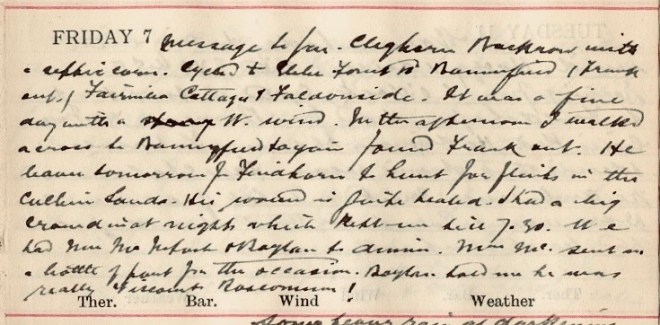 FRIDAY 7 message to Jas. Cleghorn Backrow with
a septic corn. Cycled to Elibe Forest Rd Bannyfield (Frank
out.) Fairnilee Cottages & Faldonside. It was a fine
day with a strong W. wind. In the afternoon I walked
across to Bannyfield again found Frank out. He
leaves tomorrow for Findhorn to hunt for flints in the
Culbin Sands. His wound is quite healed. I had a big
crowd in at night which kept me till 7.30. We
had Mrs Mc & Boylan to dinner. Mrs Mc. sent in
a bottle of port for the occasion. Boylan told me he was
really Viscount Roscommon!
Ther. Bar. Wind Weather
some heavy rain at darkening